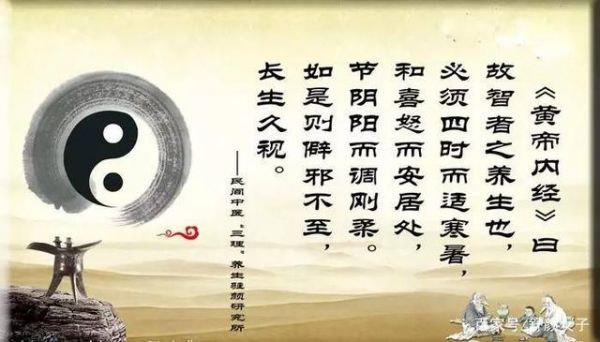 《黄帝内经》曰
故智者之养生也，
必须四时而适寒暑，
和喜怒而安居处，
节阴阳而调刚柔。
如是则僻邪不至，
长生久视。
——民间中医“三理”养生驻颜研究所
百家号